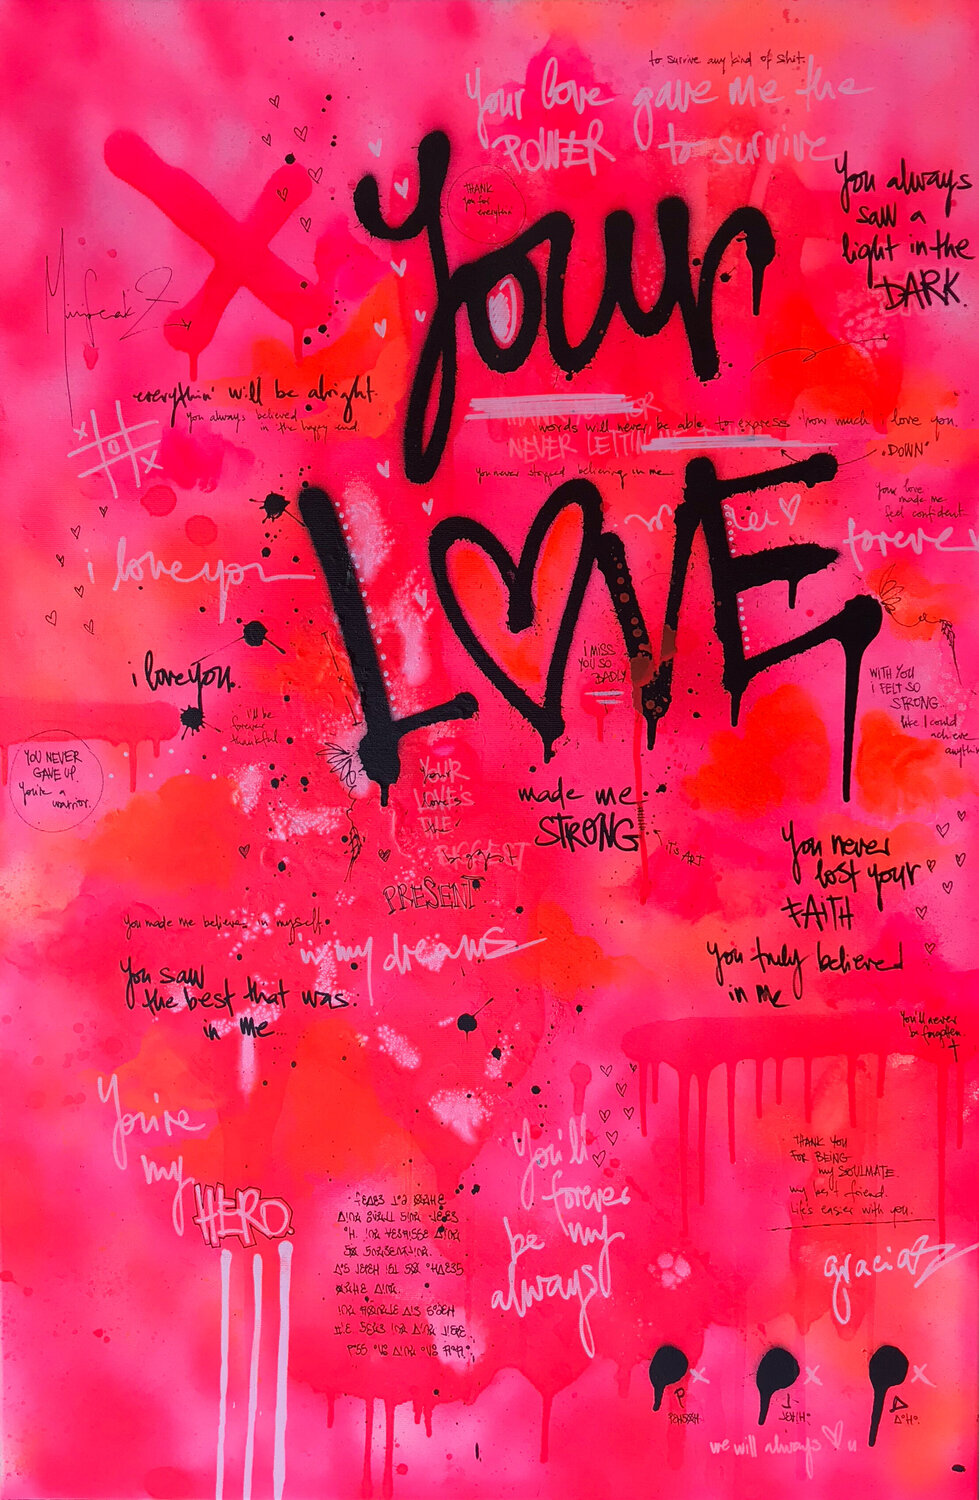 to survive any kind of shit.
Your love gave me the
POWER to survive
You always
saw a
light in the
DARK.
THANK
you for
everythin
Your
everythin' will be alright.
You always believed
in the happy end.
NEVER LETTIN
words will never be able to express how much i love you.
"DOWN"
You never stopped believing in me
Your love
made me
feel confident.
LOVE
forever
i love you
i love you.
i MISS
YOU SO
BADLY
WITH YOU
i FELT SO
STRONG...
like I could
achieve
anythin
i'll be
forever
thankful
YOU NEVER
GAVE UP.
You're a
warrior.
YOUR
LOVE'S
THE
BIGGEST
Your
love's
the
biggest
PRESENT
made me
STRONG
IT'S ART
You never
lost your
FAITH
You truly believed
in me
You made me believe in myself.
in my dreams
You saw
the best that was
in me...
You'll never
be forgotten
You're
my
HERO.
You'll
forever
be my
always
THANK YOU
FOR BEING
my SOULMATE.
my best friend.
Life's easier with you.
we will always u